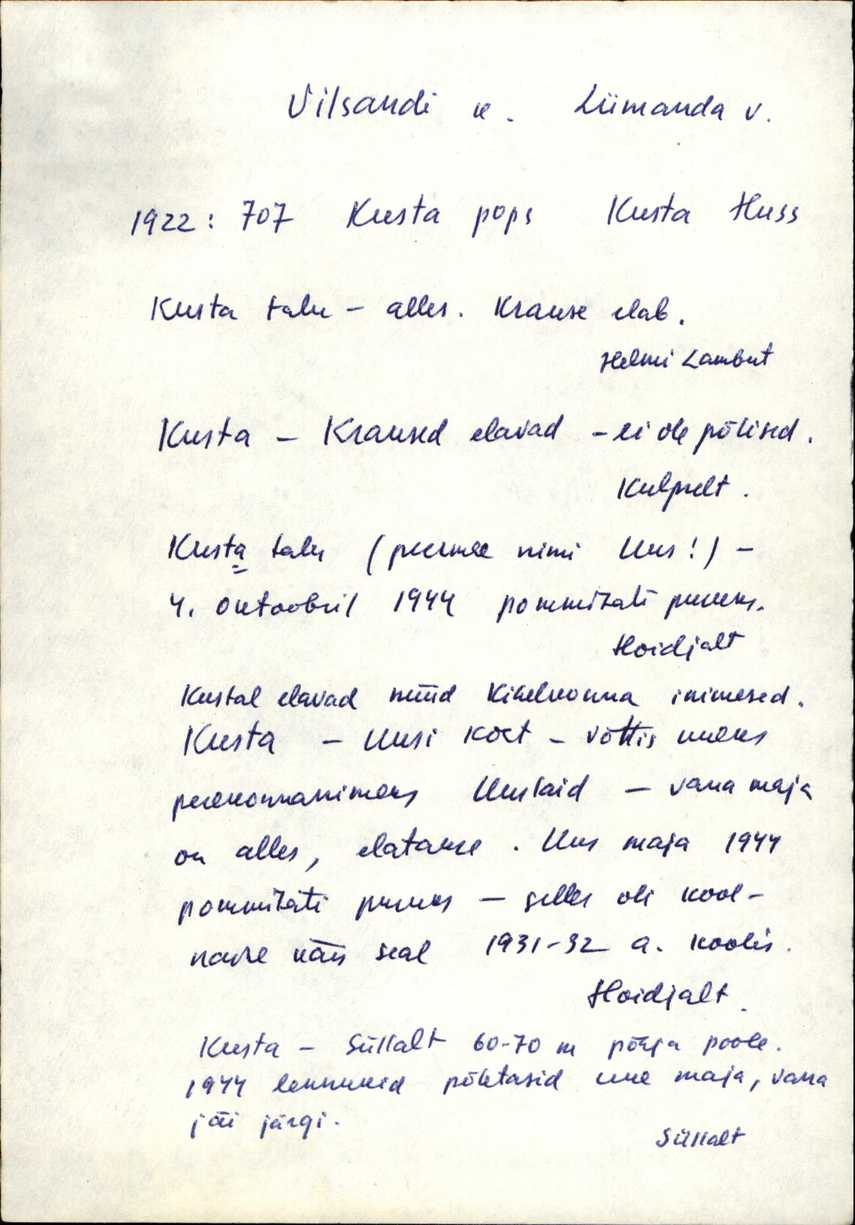 Vilsandi k. Lümanda v.
1922: 707 Kusta pops Kusta Huss
Kusta talu – alles. Krause elab.
Helmi Lambut
Kusta – Kraused elavad – ei ole põlised.
Kulpselt.
Kusta talu (peremee nimi Uus!) –
4. oktoobril 1944 pommitati puruks.
Hoidjalt
Kustal elavad nüüd Kihelkonna inimesed.
Kusta – Uusi koet – võttis uueks
perekonnanimeks Uuslaid – vana maja
on alles, elatakse. Uus maja 1944
pommitati puruks – selles oli kool –
käis seal 1931-32 a. koolis.
Hoidjalt.
Kusta – Süllalt 60-70 m põhja poole.
1944 lennukid põletasid uue maja, vana
jäi järgi.
Süllalt